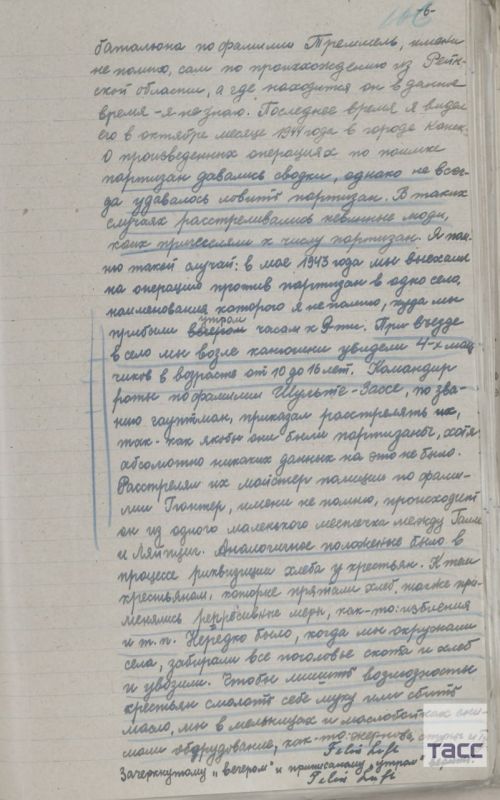 -6-
батальона по фамилии Треммель, имени
не помню, сам по происхождению из Рейн-
ской области, а где находится он в данное
время - я не знаю. Последнее время я видел
его в октябре месяце 1944 года в городе
О произведенных операциях по поимке
партизан давались сводки, однако не всег-
да удавалось ловить партизан. В таких
случаях расстреливались невинные люди,
коих причисляли к числу партизан. Я пом-
ню такой случай: в мае 1943 года мы выехали
на операцию против партизан в одно село,
наименования которого я не помню, куда мы
утром
прибыли вечером часам к 9-ти. При въезде
в село мы возле конюшни увидели 4-х маль-
чиков в возрасте от 10 до 16 лет. Командир
роты по фамилии Шульте-Зассе, по зва-
нию гауптман, приказал расстрелять их,
так-как якобы они были партизаны, хотя
абсолютно никаких данных на это не было.
Расстрелял их майстер полиции по фами-
лии Гюнтер, имени не помню, происходит
он из одного маленького местечка между Галле
и Ляйпциг. Аналогичное положение было в
процессе риквизиции хлеба у крестьян. К тем
крестьянам, которые прятали хлеб, также при-
менялись репрессивные меры, как-то: избиения
и т.п. Нередко было, когда мы окружали
села, забирали все поголовье скота и хлеб
и увозили. Чтобы лишить возможности
крестьян смолоть себе муку или сбить
масло, мы в мельницах и маслобойках сни-
мали оборудование, как-то: жернова, ступы и
Зачеркнутому "вечером" и приписанному "утром"
ТАСС